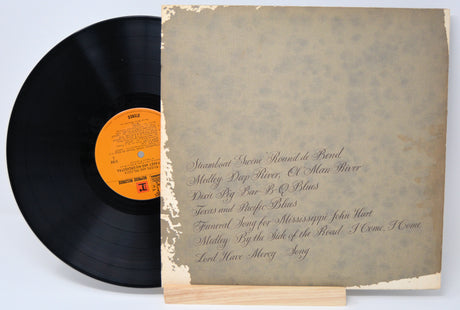 Steamboat Sheene 'Round de Bend
Medley Deep River, Ol' Man River
Dixie Pig Bar-B-Q Blues
Texas and Pacific Blues
Funeral Song for Mississippi John Hurt
Medley By the Side of the Road I Come, I Come
Lord Have Mercy Song
REPRISE RECORDS
STEREO